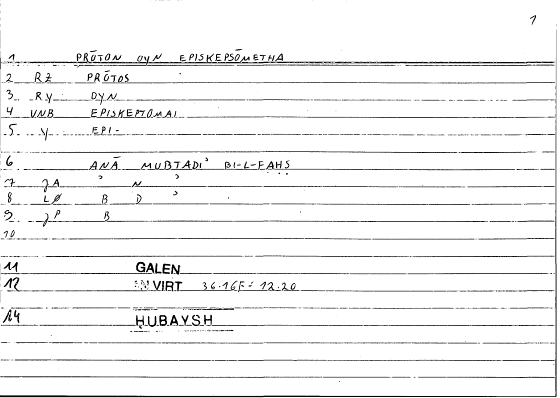 1
1 PRŌTON OYN EPISKEPSŌMETHA
2 RZ PRŌTOS
3 RY OYN
4 VNB EPISKEPTOMAI
5 Y EPI-
6 ANĀ MUBTADIʾ BI-L-FAḤṢ
7 JA ʾ N ʾ
8 LØ B D ʾ
9 JP B
10
11 GALEN
12 AN VIRT 36.16F = 12.20
14 ḤUBAYSH